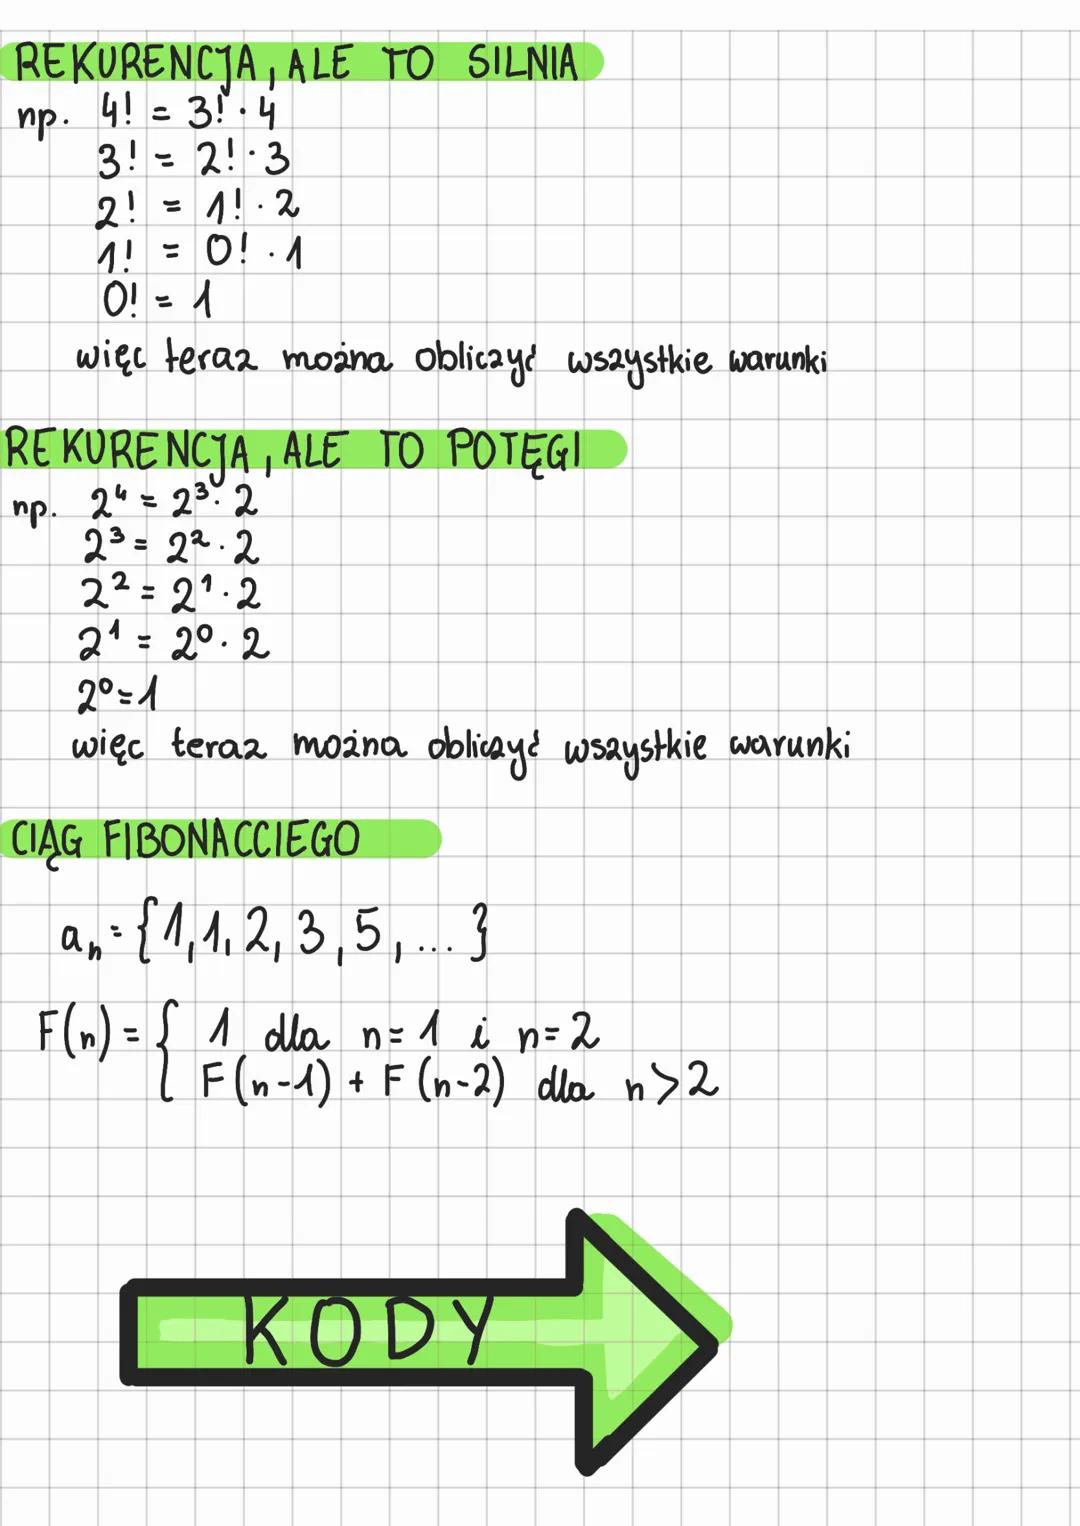 REKURENCJA, ALE TO SILNIA
np. 4! = 3! · 4
3! = 2! · 3
2! = 1! · 2
1! = 0! · 1
0! = 1
więc teraz można obliczyć wszystkie warunki
REKURENCJA, ALE TO POTĘGI
np. 2⁴ = 2³ · 2
2³ = 2² · 2
2² = 2¹ · 2
2¹ = 2⁰ · 2
2⁰ = 1
więc teraz można obliczyć wszystkie warunki
CIĄG FIBONACCIEGO
aₙ = {1, 1, 2, 3, 5, ... }
F(n) = { 1 dla n = 1 i n = 2
F(n-1) + F(n-2) dla n > 2
KODY